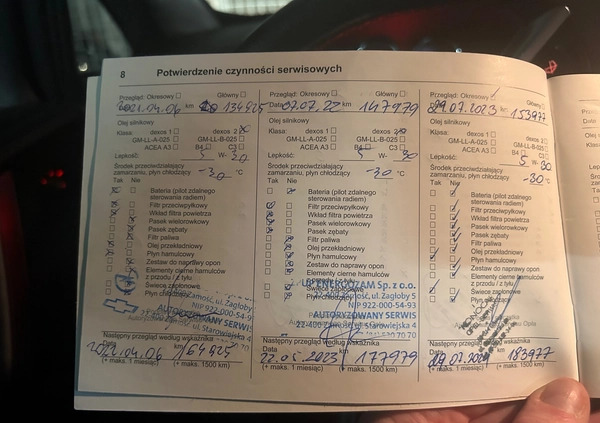 8 Potwierdzenie czynności serwisowych
Przegląd: Okresowy □ Główny □
2021.04.06 km 134825
Olej silnikowy
Klasa: dexos 1 □ dexos 2
GM-LL-A-025 □ GM-LL-B-025 □
ACEA A3 □ B4 □ C3 □
Lepkość: 5 W-
Środek przeciwdziałający
zamarzaniu, płyn chłodzący -30 °C
Tak Nie
Bateria (pilot zdalnego
sterowania radiem)
Filtr przeciwpyłkowy
Wkład filtra powietrza
Pasek wielorowkowy
Pasek zębaty
Filtr paliwa
Olej przekładniowy
Płyn hamulcowy
Zestaw do naprawy opon
Elementy cierne hamulców
z przodu / z tyłu
Świece zapłonowe
Płyn chłodzący
AUTORYZOWANY SERWIS
Następny przegląd według wskaźnika
Data km
2022.04.06
(+ maks. 1 miesiąc) (+ maks. 1500 km)
Przegląd: Okresowy □ Główny □
Data 07.07.22 km 147979
Olej silnikowy
Klasa: dexos 1 □ dexos 2
GM-LL-A-025 □ GM-LL-B-025 □
ACEA A3 □ B4 □ C3 □
Lepkość: 5 W- 30
Środek przeciwdziałający
zamarzaniu, płyn chłodzący -30 °C
Tak Nie
Bateria (pilot zdalnego
sterowania radiem)
Filtr przeciwpyłkowy
Wkład filtra powietrza
Pasek wielorowkowy
Pasek zębaty
Filtr paliwa
Olej przekładniowy
Płyn hamulcowy
Zestaw do naprawy opon
Elementy cierne hamulców
ENERGOZAM Sp. z o.o.
22-400 Zamość, ul. Zagłoby 5
NIP 922-000-54-93
AUTORYZOWANY SERWIS
22-400 Zamość, ul. Starowiejska 4
Następny przegląd według wskaźnika
Data km
22.05.2023 177979
(+ maks. 1 miesiąc) (+ maks. 1500 km)
Przegląd: Okresowy □ Główny □
Data 29.07.2023 km 153977
Olej silnikowy
Klasa: dexos 1 □ dexos 2 □
GM-LL-A-025 □ GM-LL-B-025 □
ACEA A3 □ B4 □ C3 □
Lepkość: 5 W- 30
Środek przeciwdziałający
zamarzaniu, płyn chłodzący -30 °C
Tak Nie
Bateria (pilot zdalnego
sterowania radiem)
Filtr przeciwpyłkowy
Wkład filtra powietrza
Pasek wielorowkowy
Pasek zębaty
Filtr paliwa
Olej przekładniowy
Płyn hamulcowy
Zestaw do naprawy opon
Elementy cierne hamulców
z przodu / z tyłu
Świece zapłonowe
Płyn chłodzący
Następny przegląd według wskaźnika
Data km
183977
(+ maks. 1 miesiąc) (+ maks. 1500 km)